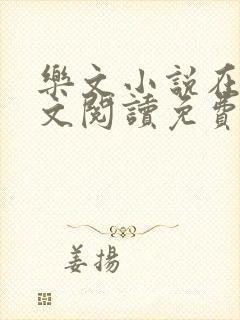 樂文小說在
文閱讀免費
姜揚